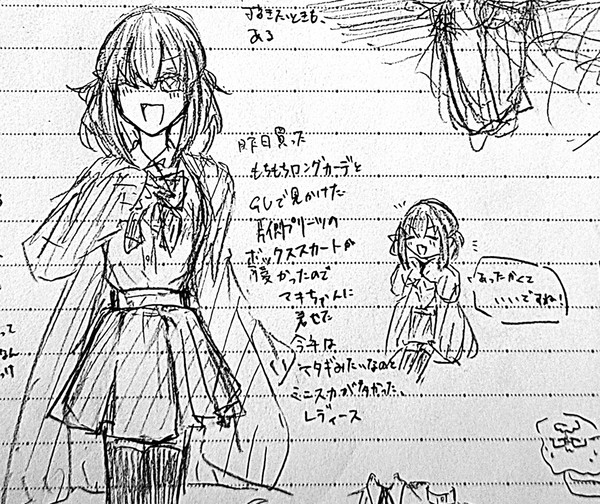 するきたいときも、
ある
昨日買った
もちもちロングカーデと
GUで見かけた
片側プリーツの
ボックススカートが
可愛かったので
マキちゃんに
着せた
今年は
マタギみたいなのと
ミニスカが多かった、
レディース
あったかくて
いいですね!
って
なん